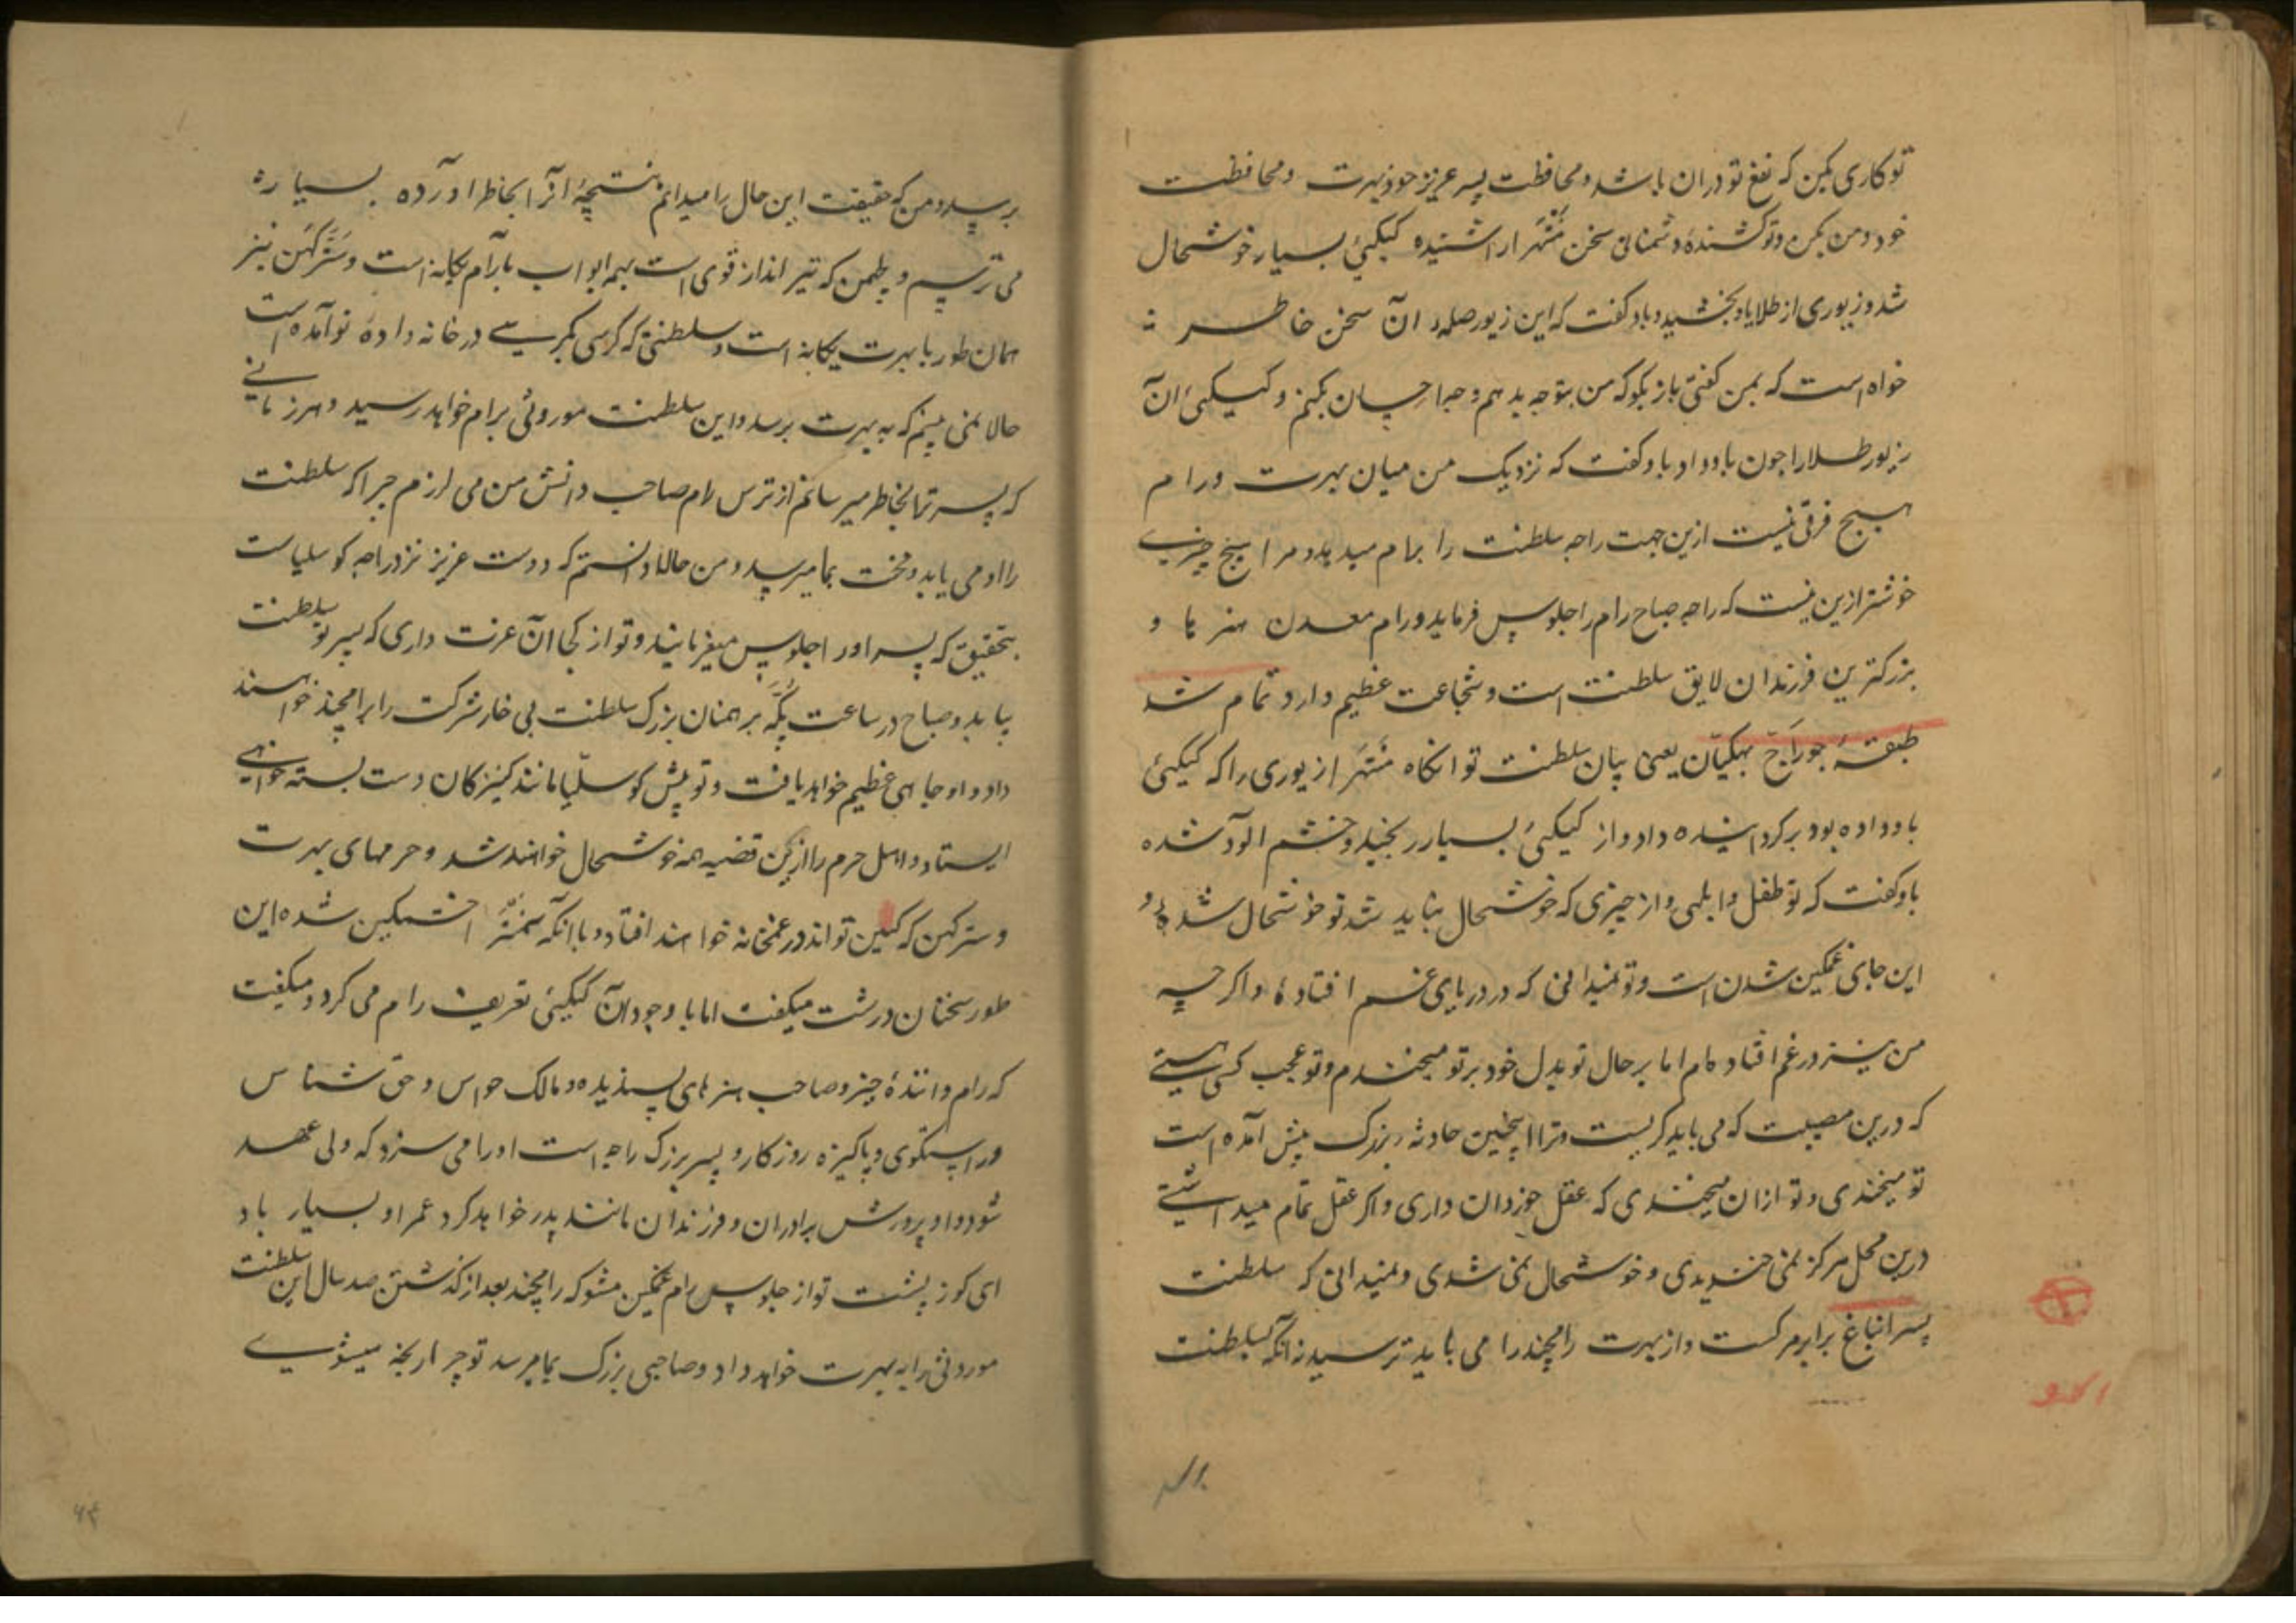 تو کاری بکن که نفع تو دران باشد و محافظت پسر عزیز خود بهرت و محافظت
خود و من بکن و تو کشندهٔ دشمنانی سخن منتهرا را شنیده کیکیئی بسیار خوشحال
شد و زیوری از طلا باو بخشید و باو گفت که این زیور صله ان سخن خاطر
خواه است که بمن گفتی باز بگو که من بتو چه بدهم و چه احسان بکنم و کیکیئی ان
زیور طلا را چون باو داد باو گفت که نزدیک من میان بهرت و رام
هیچ فرقی نیست ازین جهت راجه سلطنت را برام میدهد و مرا هیچ چیزی
خوشتر ازین نیست که راجه صباح رام را جلوس فرماید و رام معدن هنرها و
بزرکترین فرزندان لایق سلطنت است و شجاعت عظیم دارد تمام شد
طبقهٔ جوراج بهکیان یعنی بیان سلطنت تو انکاه منتهرا زیوری را که کیکیئی
باو داده بود برکردانیده داد و از کیکیئی بسیار رنجید و خشم الود شده
باو گفت که تو طفل و ابلهی و از چیزی که خوشحال نباید شد تو خوشحال شدهٔ و
این جای غمکین شدن است و تو نمیدانی که در دریای غم افتادهٔ و اکر چه
من نیز در غم افتاده ام اما بر حال تو بدل خود بر تو میخندم و تو عجب کسی هستی
که درین مصیبت که می باید کریست و ترا اینچنین حادثه بزرک پیش آمده است
تو میخندی و تو ازان میخندی که عقل خوردان داری و اکر عقل تمام میداشتی
درین محل هرکز نمی خندیدی و خوشحال نمی شدی و نمیدانی که سلطنت
پسر انباغ برابر مرکست و از بهرت رامچند را می باید ترسید زانکه سلطنت
برسد و من که حقیقت این حال را میدانم نتیچهٔ انرا بخاطر اورده بسیار
می ترسم و لچهمن که تیر انداز قوی است بهمه ابواب با رام یکانه است و سترکهن نیز
همان طور با بهرت یکانه است و سلطنتی که کرسی بکرسی در خانه دادهٔ تو آمده است
حالا نمی بینم که به بهرت برسد و این سلطنت موروثی برام خواهد رسید و هر زمانی
که پسر ترا بخاطر میرسانم از ترس رام صاحب دانش من می لرزم چرا که سلطنت
را او می یابد و من حالا دانستم که دوست عزیز نزد راجه کوسلیاست
بتحقیق که پسر او را جلوس میفرمایند و تو از کجا ان عزت داری که پسر تو سلطنت
بیابد و صباح در ساعت پکه برهمنان بزرک سلطنت بی خار شرکت را برامچند خواهند
داد و او جاهی عظیم خواهد یافت و تو پیش کوسلیا مانند کنیزکان دست بسته خواهی
ایستاد و اهل حرم را ازین قضیه همه خوشحال خواهند شد و حرمهای بهرت
و سترکهن که کنین تو اند در غمخانه خواهند افتاد و با انکه منتهرا خشمکین شده این
طور سخنان درشت میکفت اما با وجود ان کیکیئی تعریف رام می کرد و میکفت
که رام دانندهٔ چیز و صاحب هنرهای پسندیده و مالک حواس و حق شناس
و راستکوی و پاکیزه روزکار و پسر بزرک راجه است او را می سزد که ولی عهد
شود و او پرورش برادران و فرزندان مانند پدر خواهد کرد عمر او بسیار باد
ای کوز پشت تو از جلوس رام غمکین مشو که رامچند بعد از کذشتن صد سال این سلطنت
موروثی را به بهرت خواهد داد و صاحبی بزرک بما میرسد تو چرا رنجه میشوی